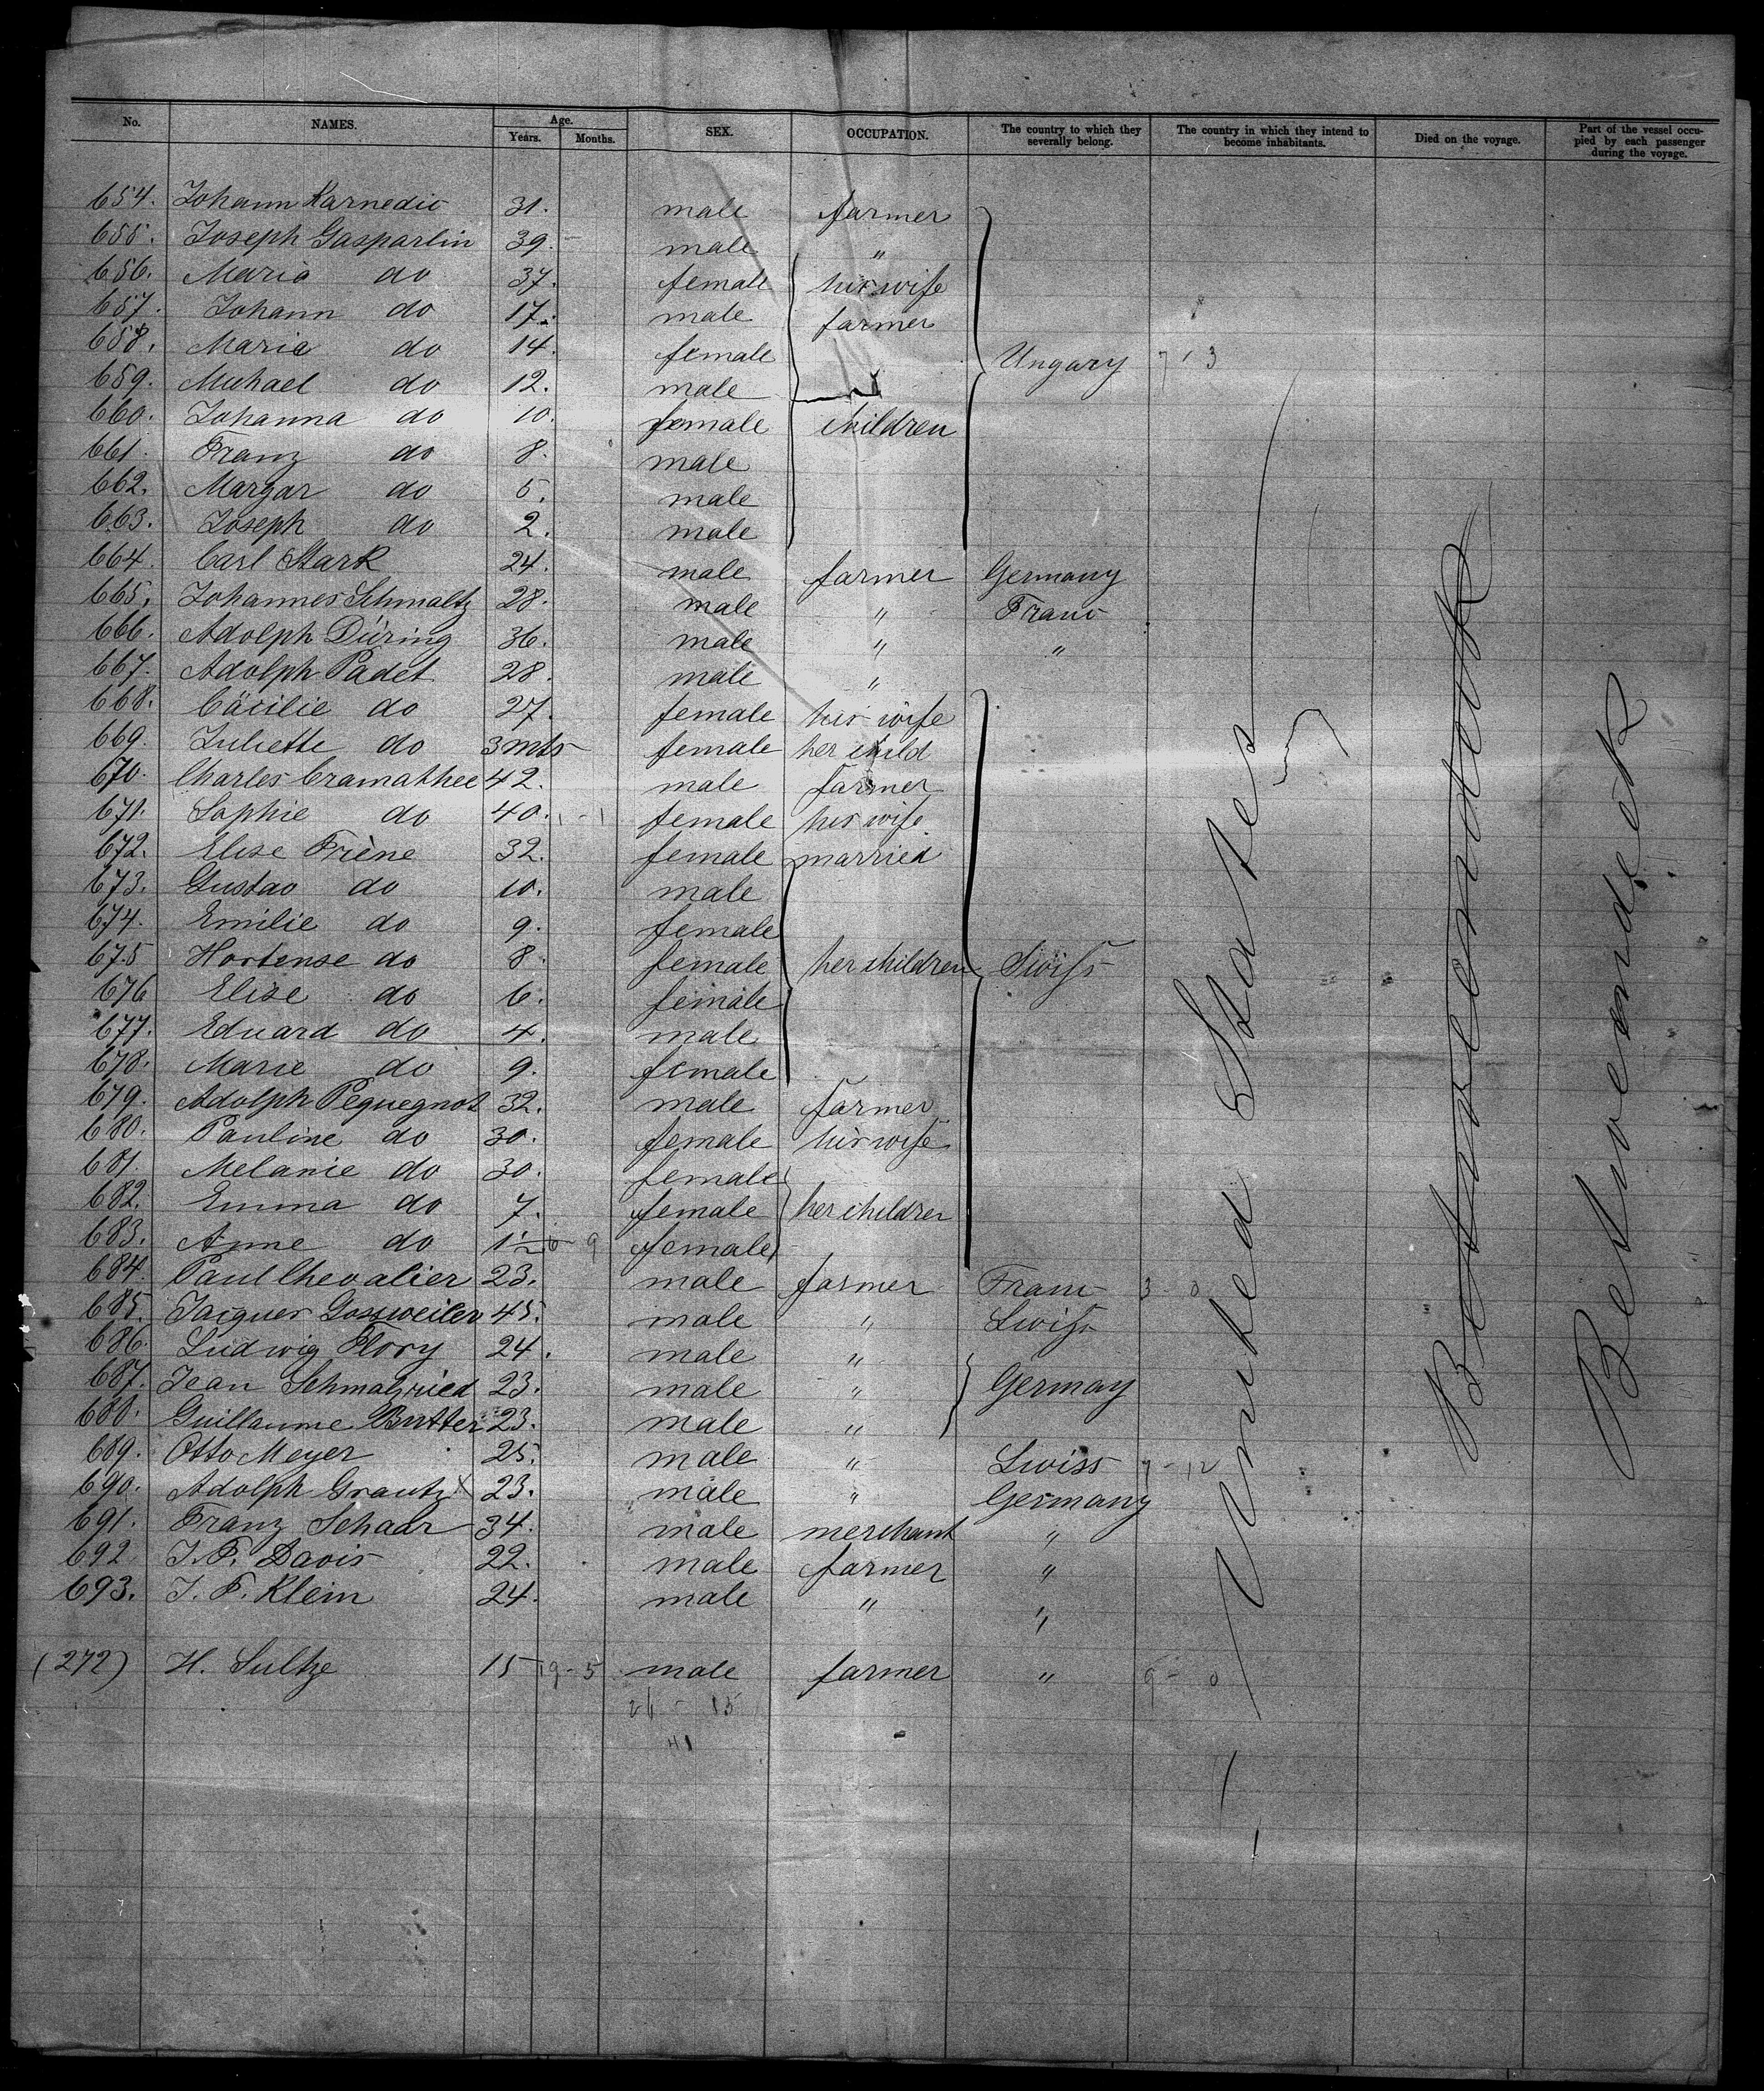 No. NAMES. Age. Years. Months. SEX. OCCUPATION. The country to which they severally belong. The country in which they intend to become inhabitants. Died on the voyage. Part of the vessel occupied by each passenger during the voyage.
654. Johann Karnedic 31. male farmer
655. Joseph Gasparlin 39. male "
656. Maria do 37. female his wife
657. Johann do 17. male farmer
658. Maria do 14. female Ungary 7 13
659. Michael do 12. male
660. Johanna do 10. female children
661. Franz do 8. male
662. Margar do 5. male
663. Joseph do 2. male
664. Carl Stark 24. male farmer Germany
665. Johannes Schmaltz 28. male " Franc
666. Adolph Düring 36. male " "
667. Adolph Padet 28. male "
668. Cäcilie do 27. female his wife
669. Juliette do 3 mts female her child
670. Charles Cramatthee 42. male farmer
671. Sophie do 40. 1-1 female his wife
672. Elise Friène 32. female married
673. Gustav do 10. male
674. Emilie do 9. female
675 Hortense do 8. female her children Swiss
676 Elise do 6. female
677. Eduard do 4. male
678. Marie do 9. female
679. Adolph Pequegnot 32. male farmer
680. Pauline do 30. female his wife
681. Melanie do 30. female
682. Emma do 7. female her children
683. Anne do 1½ 6-9 female
684. Paul Chevalier 23. male farmer Franc 3-0
685. Jacques Gossweiler 45. male " Swiss
686. Ludwig Flory 24. male "
687. Jean Schmalzried 23. male " Germay
688. Guillaume Butter 23. male "
689. Otto Meyer 25. male " Swiss 7-12
690. Adolph Grautz 23. male " Germany
691. Franz Schaar 34. male merchant "
692 J. F. Davis 22. male farmer "
693. J. F. Klein 24. male " "
(272) H. Sultze 15 19-5 male farmer " 9-0
26-15
41
United States
Betweendeck
Betweendeck